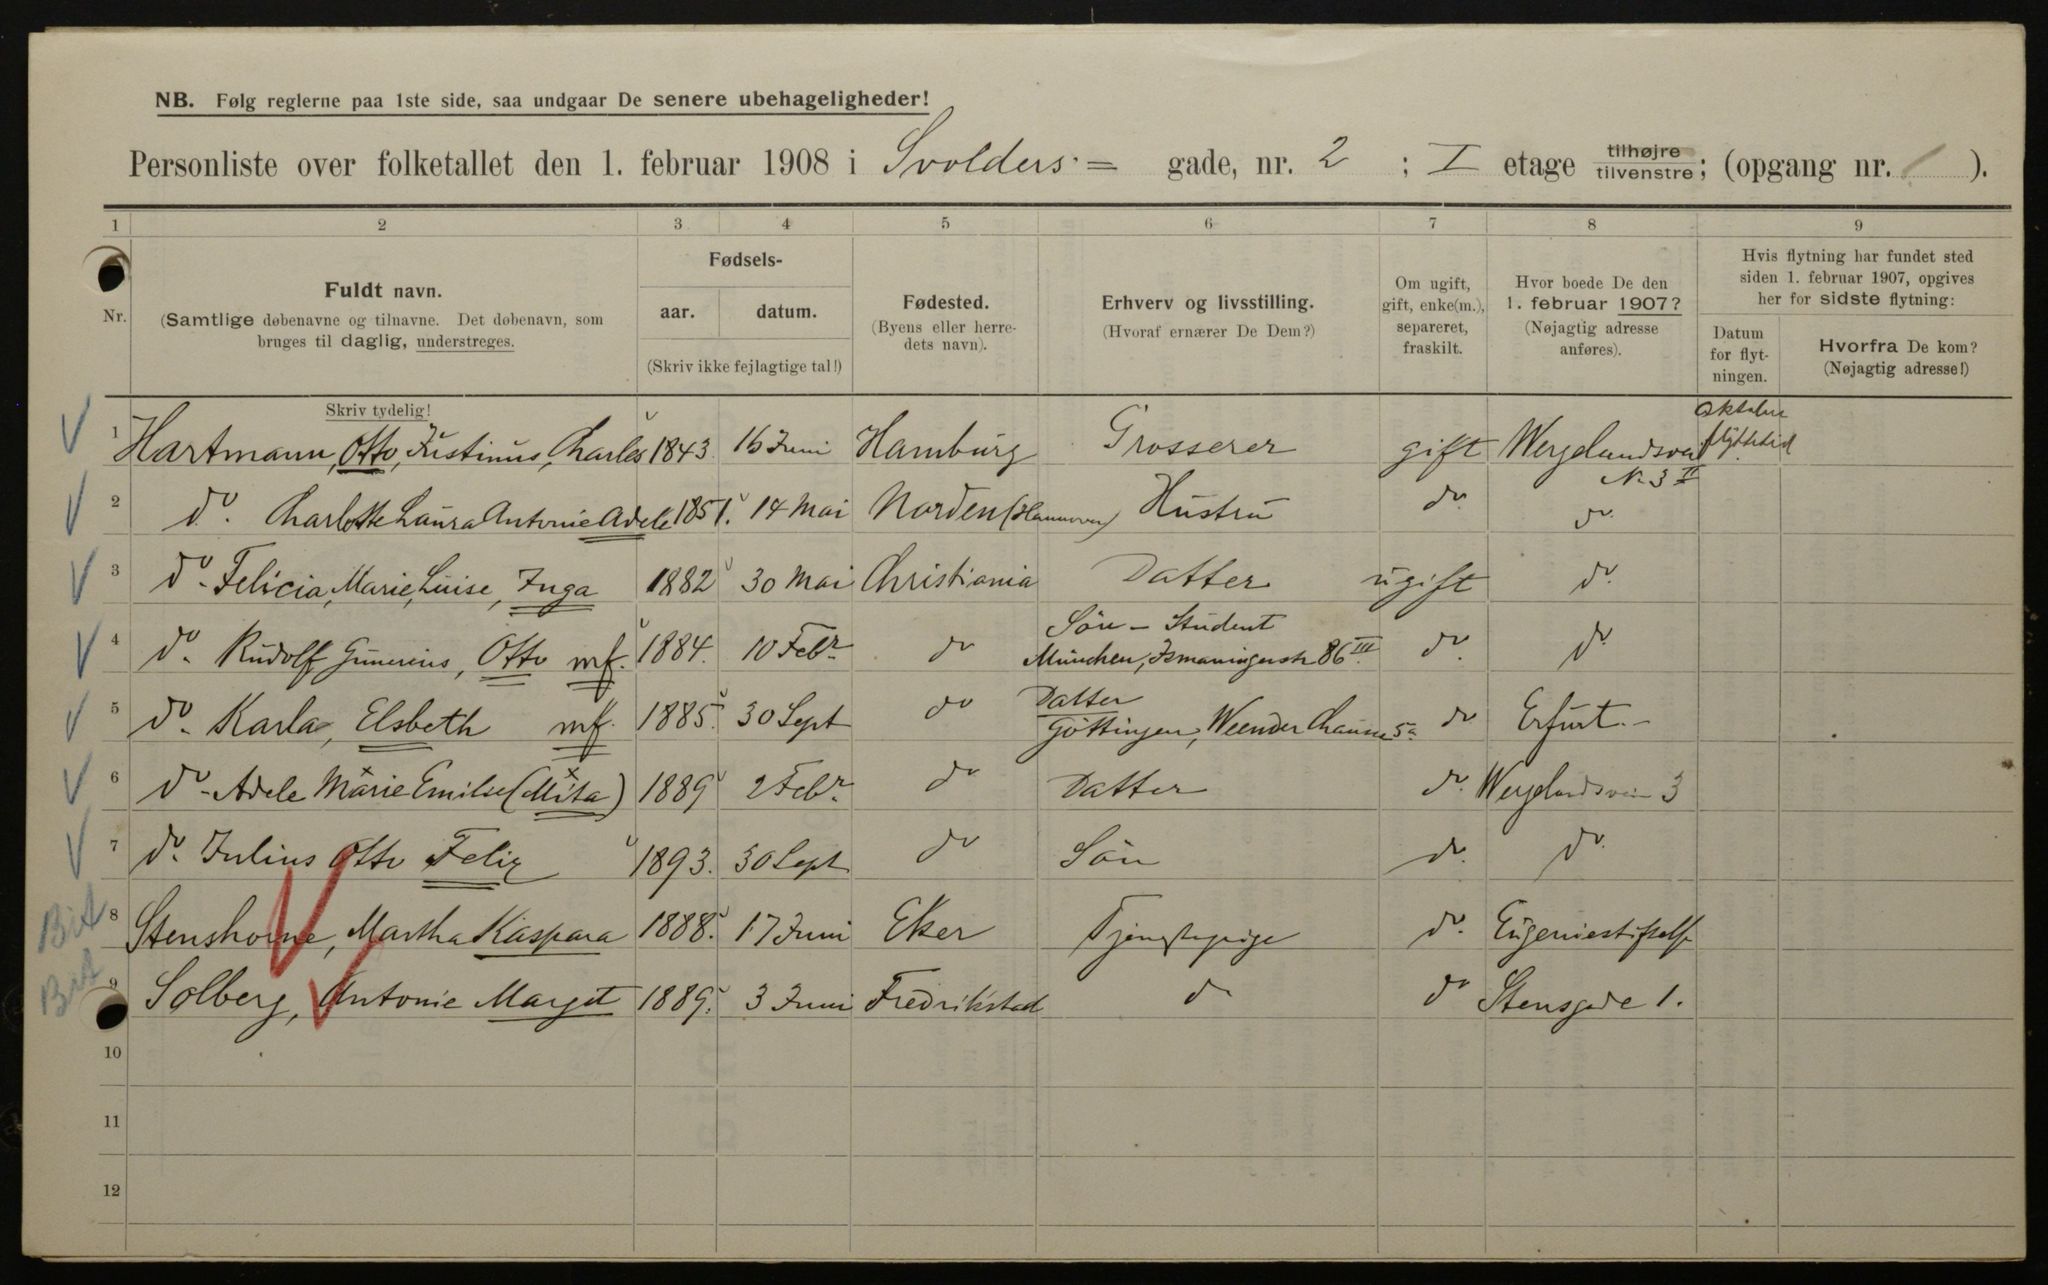 NB. Følg reglerne paa 1ste side, saa undgaar De senere ubehageligheder!
Personliste over folketallet den 1. februar 1908 i Svolders = gade, nr. 2 ; I etage tilhøjre tilvenstre; (opgang nr. ).
1 2 3 4 5 6 7 8 9
Nr.
Fuldt navn.
(Samtlige døbenavne og tilnavne. Det døbenavn, som
bruges til daglig, understreges.
Skriv tydelig!
Fødsels-
aar. datum.
(Skriv ikke fejlagtige tal!)
Fødested.
(Byens eller herre-
dets navn).
Erhverv og livsstilling.
(Hvoraf ernærer De Dem?)
Om ugift,
gift, enke(m.),
separeret,
fraskilt.
Hvor boede De den
1. februar 1907?
(Nøjagtig adresse
anføres).
Hvis flytning har fundet sted
siden 1. februar 1907, opgives
her for sidste flytning:
Datum
for flyt-
ningen.
Hvorfra De kom?
(Nøjagtig adresse!)
1 Hartmann, Otto, Justinus, Charles 1843 16 Juni Hamburg Grosserer gift Wergelandsvei No 3 II Oktober flyttetid
2 do. Charlotte Laura Antonie Adele 1851. 14 Mai Norden (Hannover) Hustru do. do.
3 do. Felicia, Marie, Luise, Inga 1882 30 Mai Christiania Datter ugift do.
4 do. Rudolf Gunerius, Otto mf. 1884. 10 Febr. do Sön - Student
München, Ismaningerstr 86 III. do. do.
5 do. Karla, Elsbeth mf. 1885. 30 Sept do Datter
Göttingen, Weender Chaussee 5a do Erfurt. -
6 do. Adele Marie Emilie (Mita) 1889 2 Febr. do Datter do. Wergelandsvei 3
7 do. Julius Otto Felix 1893. 30 Sept do Sön do. do.
8 Stenshorne, Martha Kaspara 1888. 17 Juni Eker Tjenestepige do. Eugeniestiftelse
9 Solberg, Antonie Margit 1889. 3 Juni Fredrikstad do do Stensgade 1.
10
11
12